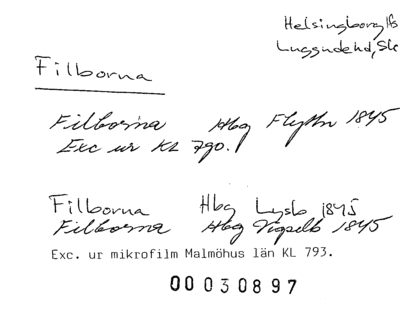 Helsingborg lfs
Luggude hd, Sk
Filborna
Filborna Hbg 1845
Exc ur KL 790.
Filborna Hbg 1845
Filborna Hbg 1845
Exc. ur mikrofilm Malmöhus län KL 793.
00030897